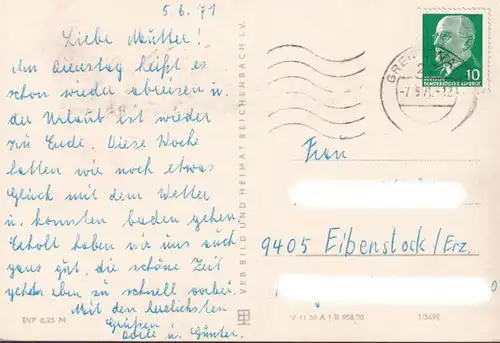 5.6.71
Liebe Mutter!
Am Dienstag heißt es
schon wieder abreisen u.
der Urlaub ist wieder
zu Ende. Diese Woche
hatten wir noch etwas
Glück mit dem Wetter
u. konnten baden gehen.
Erholt haben wir uns auch
ganz gut, die schöne Zeit
geht eben zu schnell vorbei.
Mit den herzlichsten
Grüßen
u. Günter.
EVP 0,25 M
VEB BILD UND HEIMAT REICHENBACH I. V.
10
DEUTSCHE DEMOKRATISCHE REPUBLIK
Frau
9405 Eibenstock/Erz.
V 11 50 A 1 B 958/70
1/549E